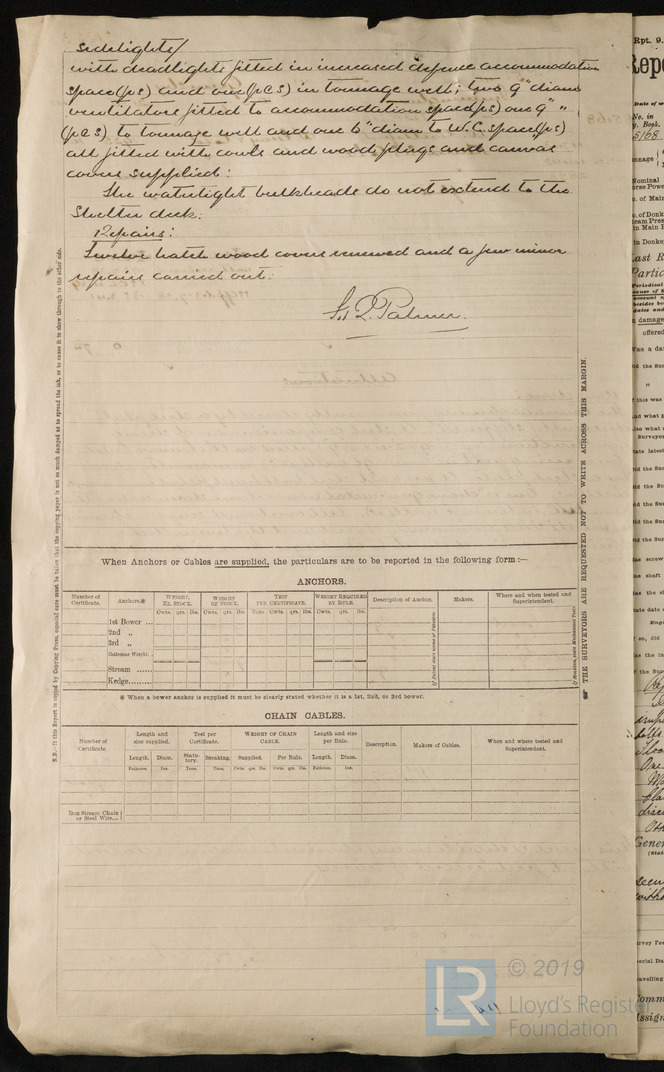 sidelights/
with deadlights fitted in increased defence accommodation
space (ps) and one (p&s) in tonnage well; two 9" diam
ventilators fitted to accommodation space (ps) one 9" "
(p&s) to tonnage well and one 6" diam to W.C. space (ps)
all fitted with cowls and wood plugs and canvas
covers supplied.
The watertight bulkheads do not extend to the
Shelter deck.
Repairs:
Twelve hatch wood covers renewed and a few minor
repairs carried out.
Palmer.
When Anchors or Cables are supplied, the particulars are to be reported in the following form :—
ANCHORS.
Number of Certificate. Anchors.* WEIGHT, EX. STOCK. WEIGHT OF STOCK. TEST PER CERTIFICATE. WEIGHT REQUIRED BY RULE. Description of Anchor. Makers. Where and when tested and Superintendent.
Cwts. qrs. lbs. Cwts. qrs. lbs. Tons. Cwts. qrs. lbs. Cwts. qrs. lbs.
1st Bower ...
2nd „
3rd „
Collective Weight.
Stream ......
Kedge.........
* When a bower anchor is supplied it must be clearly stated whether it is a 1st, 2nd, or 3rd bower.
CHAIN CABLES.
Number of Certificate. Length and size supplied. Test per Certificate. WEIGHT OF CHAIN CABLE. Length and size per Rule. Description. Makers of Cables. When and where tested and Superintendent.
Length. Diam. Statutory. Breaking. Supplied. Per Rule. Length. Diam.
Fathoms. Ins. Tons. Tons. Cwts. qrs. lbs. Cwts. qrs. lbs. Fathoms. Ins.
Iron Stream Chain
or Steel Wire
N.B.—If this Report is copied by Copying Press, especial care must be taken that the copying paper is not so much damped as to spread the ink, or to cause it to show through to the other side.
THE SURVEYORS ARE REQUESTED NOT TO WRITE ACROSS THIS MARGIN.
Rpt. 9.
5168
LR
© 2019
Lloyd's Register
Foundation